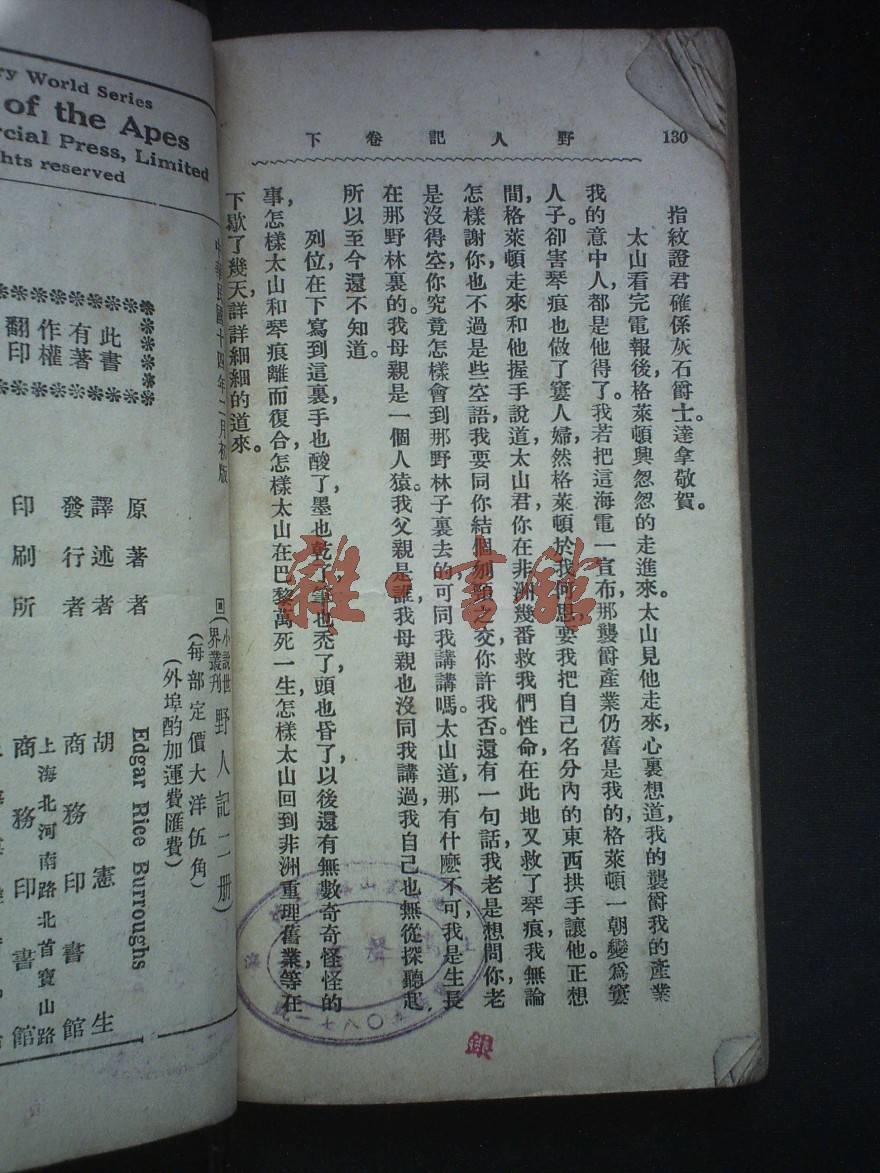 130
野人記卷下
指紋證君確係灰石爵士。達拿敬賀。
太山看完電報後，格萊頓興忽忽的走進來。太山見他走來，心裏想道，我的襲爵我的產業
我的意中人，都是他得了。我若把這海電一宣布，那襲爵產業仍舊是我的，格萊頓一朝變爲窶
人子。卻害琴痕也做了窶人婦，然格萊頓於我何恩，要我把自己名分內的東西拱手讓他。正想
間，格萊頓走來和他握手說道，太山君你在非洲幾番救我們性命，在此地又救了琴痕，我無論
怎樣謝你，也不過是些空語，我要同你結個刎頸之交，你許我否。還有一句話，我老是想問你，老
是沒得空，你究竟怎樣會到那野林子裏去的，可同我講講嗎。太山道，那有什麼不可，我是生長
在那野林裏的。我母親是一個人猿。我父親是誰，我母親也沒同我講過，我自己也無從探聽起，
所以至今還不知道。
列位，在下寫到這裏，手也酸了，墨也乾了，筆也禿了，頭也昏了，以後還有無數奇奇怪怪的
事，怎樣太山和琴痕離而復合，怎樣太山在巴黎萬死一生，怎樣太山回到非洲重理舊業，等在
下歇了幾天，詳詳細細的道來。
中華民國十四年二月初版
小說世界叢刊
野人記二册
(每部定價大洋伍角)
(外埠酌加運費匯費)
原著者 Edgar Rice Burroughs
譯述者 胡憲生
發行者 商務印書館
上海北河南路北首寶山路
印刷所 商務印書館
此書
有著
作權
翻印
World Series
of the Apes
Press, Limited
reserved
雜·書館